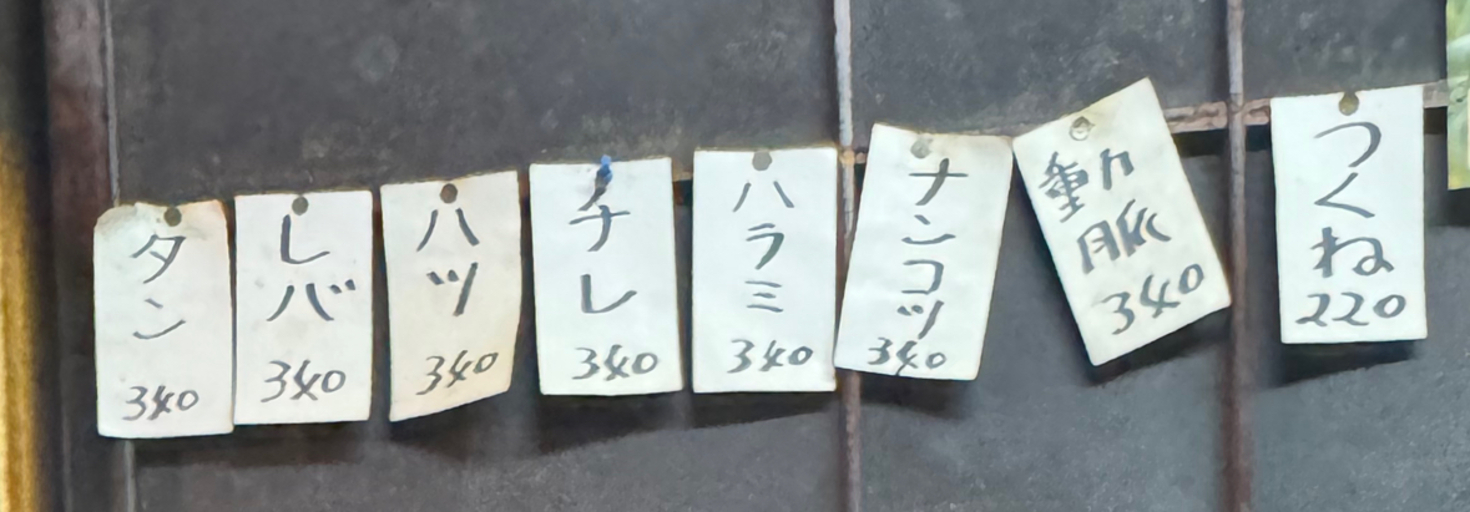 タン
340
レバ
340
ハツ
340
チレ
340
ハラミ
340
ナンコツ
340
動脈
340
つくね
220